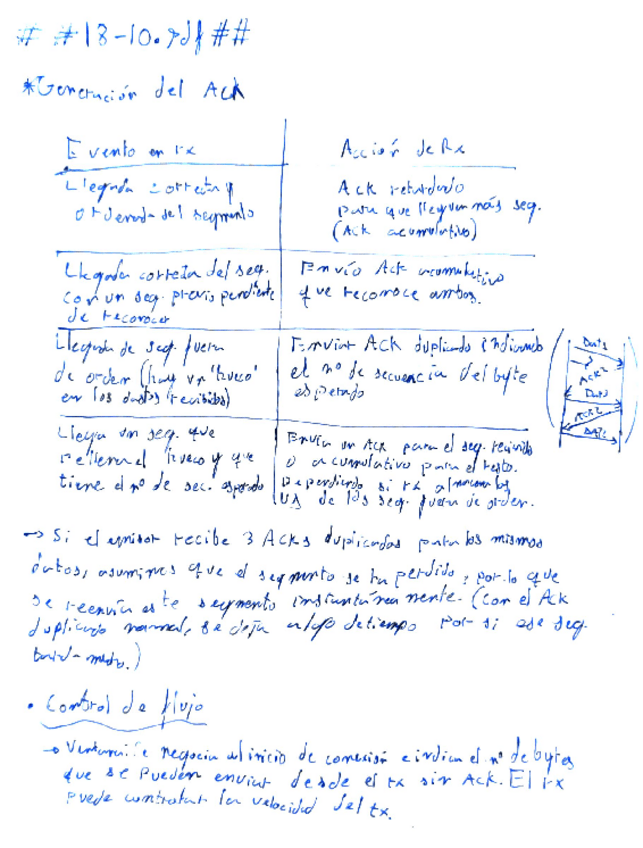 # #18-10.pdf ##
*Generación del Ack
Evento en rx
Acción de Rx
Llegada correcta y
ordenada del segmento
Ack retardado
para que lleguen más seg.
(Ack acumulativo)
Llegada correcta del seg.
con un seg. previo pendiente
de reconocer
Envío Ack acumulativo
que reconoce ambos.
Llegada de seg fuera
de orden (hay un 'hueco'
en los datos recibidos)
Enviar ACK duplicado indicando
el nº de secuencia del byte
esperado
Dat1
ACK2
Dat3
ACK2
Llega un seg. que
rellena el hueco y que
tiene el nº de sec. esperado
Envía un Ack para el seg. recibido
o acumulativo para el resto.
Dependiendo si rx almacena los
de los seg. fuera de orden.
→ Si el emisor recibe 3 Acks duplicados para los mismos
datos, asumimos que el segmento se ha perdido, por lo que
se reenvía este segmento instantáneamente. (Con el Ack
duplicado normal, se deja algo de tiempo por si ese seg.
• Control de flujo
→ Ventana: Se negocia al inicio de conexión e indica el nº de bytes
que se pueden enviar desde el tx sin Ack. El rx
puede controlar la velocidad del tx.